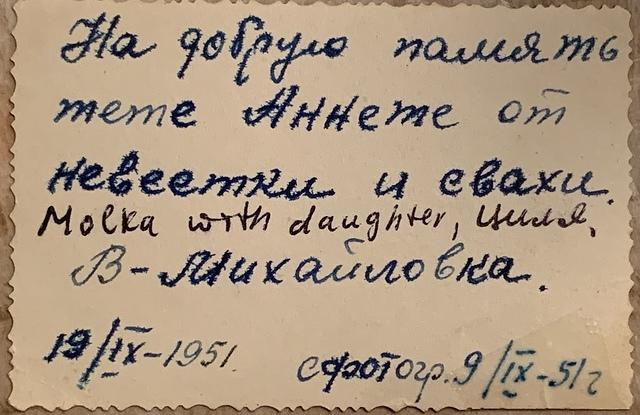 На добрую память
тете Аннете от
невестки и свахи.
Molka with daughter, Циля,
В-Михайловка.
19/IX-1951.
сфотогр. 9/IX-51г